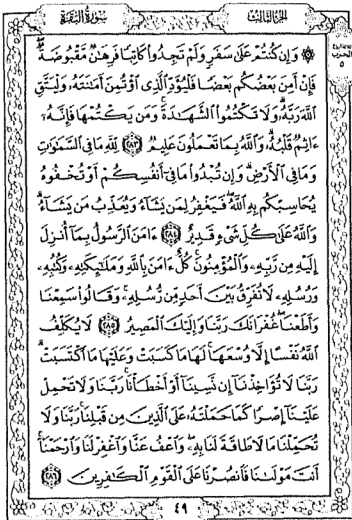 الجزء الثالث
سورة البقرة
۞ وَإِن كُنتُمْ عَلَىٰ سَفَرٍ وَلَمْ تَجِدُوا كَاتِبًا فَرِهَٰنٌ مَّقْبُوضَةٌ ۖ
فَإِنْ أَمِنَ بَعْضُكُم بَعْضًا فَلْيُؤَدِّ الَّذِي اؤْتُمِنَ أَمَانَتَهُ وَلْيَتَّقِ
اللَّهَ رَبَّهُ ۗ وَلَا تَكْتُمُوا الشَّهَادَةَ ۚ وَمَن يَكْتُمْهَا فَإِنَّهُ
ءَاثِمٌ قَلْبُهُ ۗ وَاللَّهُ بِمَا تَعْمَلُونَ عَلِيمٌ ﴿٢٨٣﴾ لِّلَّهِ مَا فِي السَّمَٰوَٰتِ
وَمَا فِي الْأَرْضِ ۗ وَإِن تُبْدُوا مَا فِي أَنفُسِكُمْ أَوْ تُخْفُوهُ
يُحَاسِبْكُم بِهِ اللَّهُ ۖ فَيَغْفِرُ لِمَن يَشَاءُ وَيُعَذِّبُ مَن يَشَاءُ ۗ
وَاللَّهُ عَلَىٰ كُلِّ شَيْءٍ قَدِيرٌ ﴿٢٨٤﴾ ءَامَنَ الرَّسُولُ بِمَا أُنزِلَ
إِلَيْهِ مِن رَّبِّهِ وَالْمُؤْمِنُونَ ۚ كُلٌّ ءَامَنَ بِاللَّهِ وَمَلَٰئِكَتِهِ وَكُتُبِهِ
وَرُسُلِهِ لَا نُفَرِّقُ بَيْنَ أَحَدٍ مِّن رُّسُلِهِ ۚ وَقَالُوا سَمِعْنَا
وَأَطَعْنَا ۖ غُفْرَانَكَ رَبَّنَا وَإِلَيْكَ الْمَصِيرُ ﴿٢٨٥﴾ لَا يُكَلِّفُ
اللَّهُ نَفْسًا إِلَّا وُسْعَهَا ۚ لَهَا مَا كَسَبَتْ وَعَلَيْهَا مَا اكْتَسَبَتْ ۗ
رَبَّنَا لَا تُؤَاخِذْنَا إِن نَّسِينَا أَوْ أَخْطَأْنَا ۚ رَبَّنَا وَلَا تَحْمِلْ
عَلَيْنَا إِصْرًا كَمَا حَمَلْتَهُ عَلَى الَّذِينَ مِن قَبْلِنَا ۚ رَبَّنَا وَلَا
تُحَمِّلْنَا مَا لَا طَاقَةَ لَنَا بِهِ ۖ وَاعْفُ عَنَّا وَاغْفِرْ لَنَا وَارْحَمْنَا ۚ
أَنتَ مَوْلَىٰنَا فَانصُرْنَا عَلَى الْقَوْمِ الْكَٰفِرِينَ ﴿٢٨٦﴾
٤٩